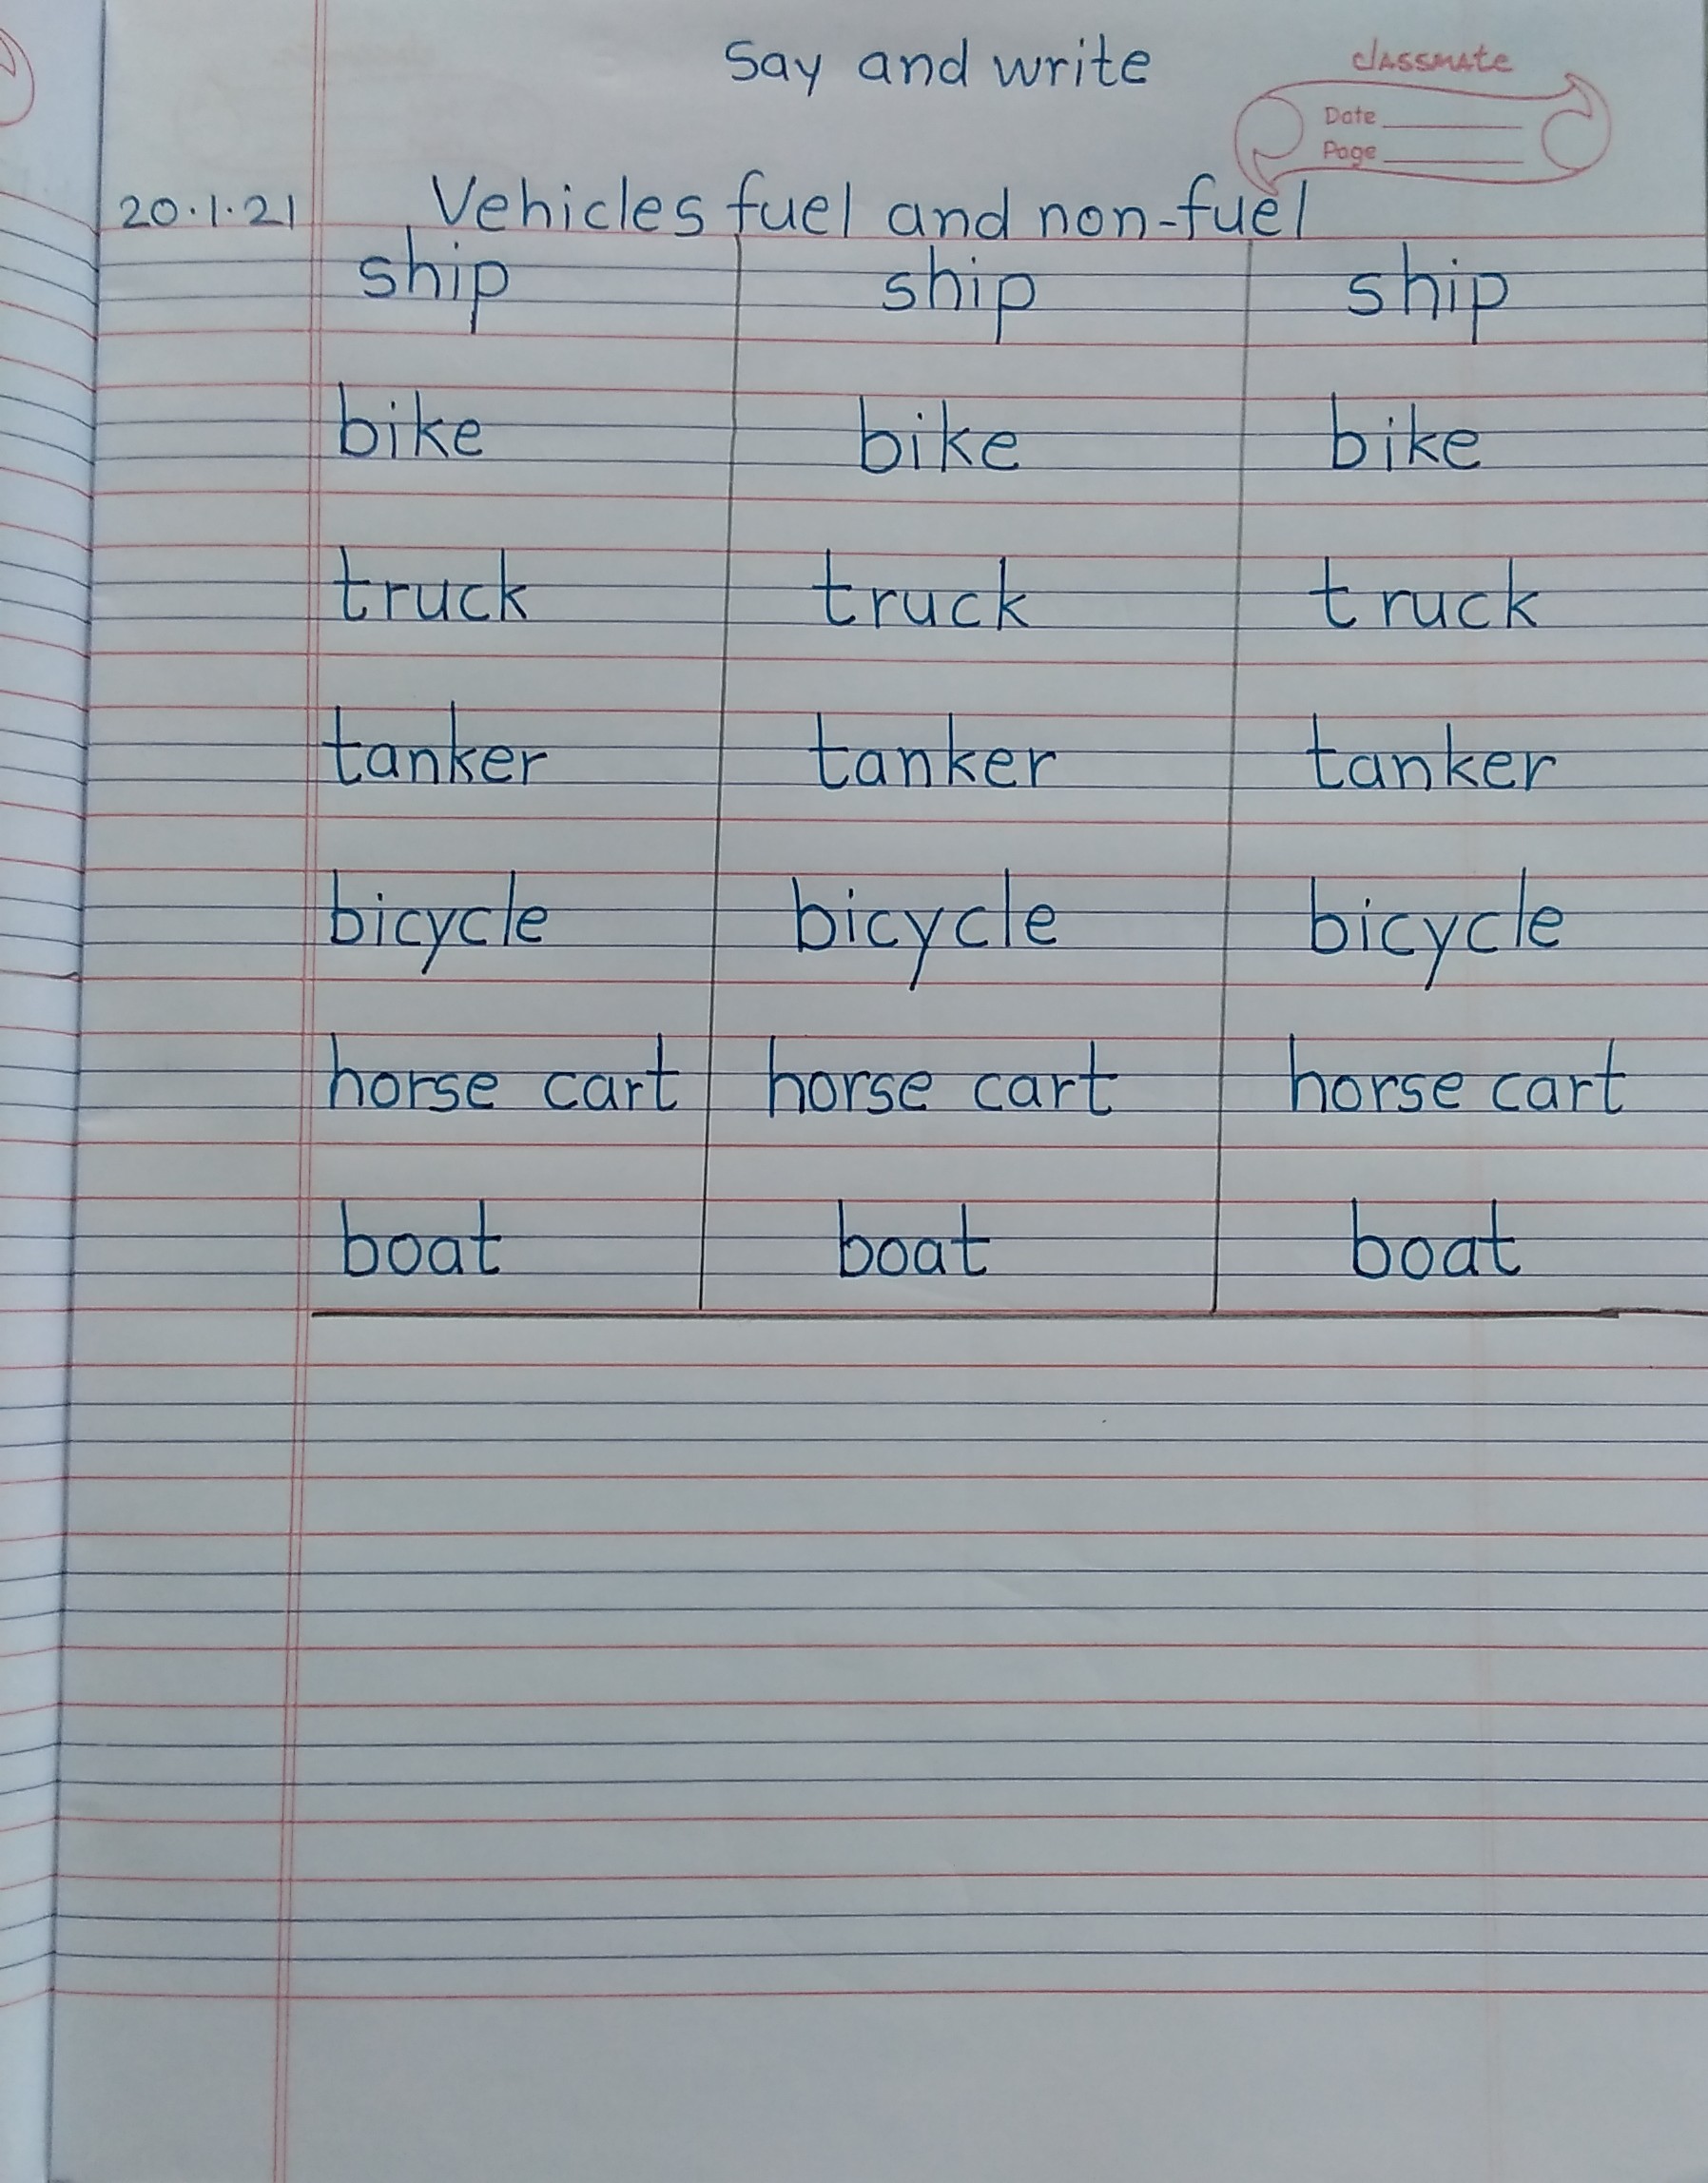 Say and write
classmate
Date
Page
20.1.21 Vehicles fuel and non-fuel
ship ship ship
bike bike bike
truck truck truck
tanker tanker tanker
bicycle bicycle bicycle
horse cart horse cart horse cart
boat boat boat